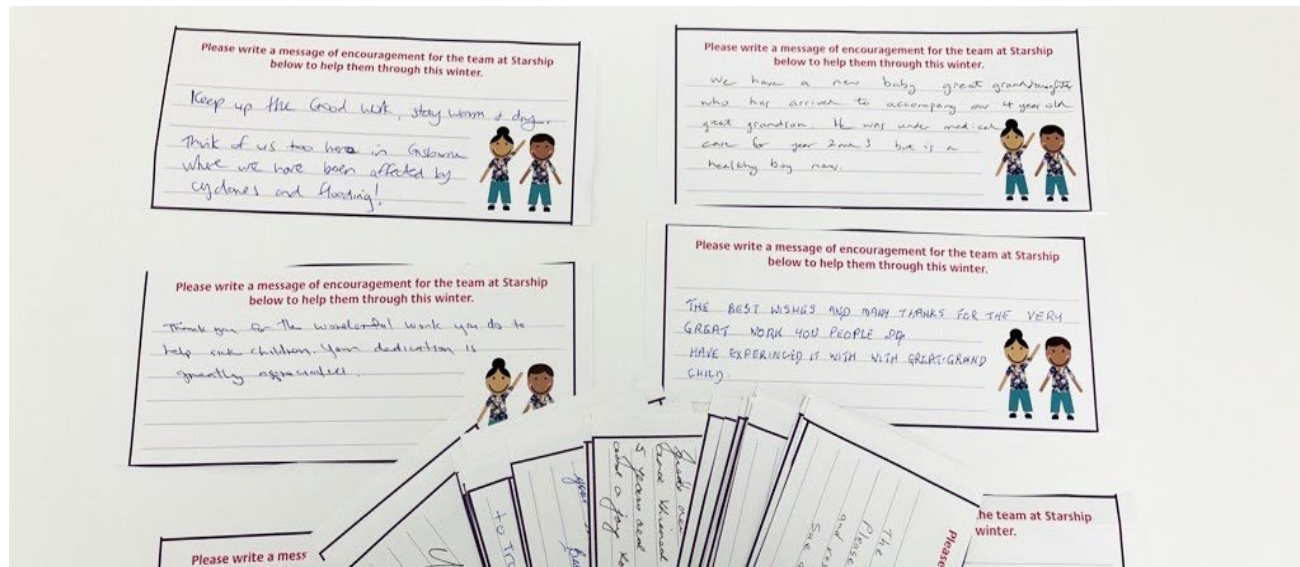 Please write a message of encouragement for the team at Starship
below to help them through this winter.
Keep up the Good work, stay warm & dry.
Think of us too here in Gisborne
where we have been affected by
cyclones and flooding!
Please write a message of encouragement for the team at Starship
below to help them through this winter.
We have a new baby great granddaughter
who has arrived to accompany our 4 year old
great grandson. He was under medical
care for year 2 and 3 but is a
healthy boy now.
Please write a message of encouragement for the team at Starship
below to help them through this winter.
Thank you for the wonderful work you do to
help sick children. Your dedication is
greatly appreciated.
Please write a message of encouragement for the team at Starship
below to help them through this winter.
THE BEST WISHES AND MANY THANKS FOR THE VERY
GREAT WORK YOU PEOPLE DO
HAVE EXPERINCED IT WITH WITH GREAT-GRAND
CHILD.
Please write a mess
to
your
5 years old
and a joy
The
Please
and
She
Please
he team at Starship
winter.